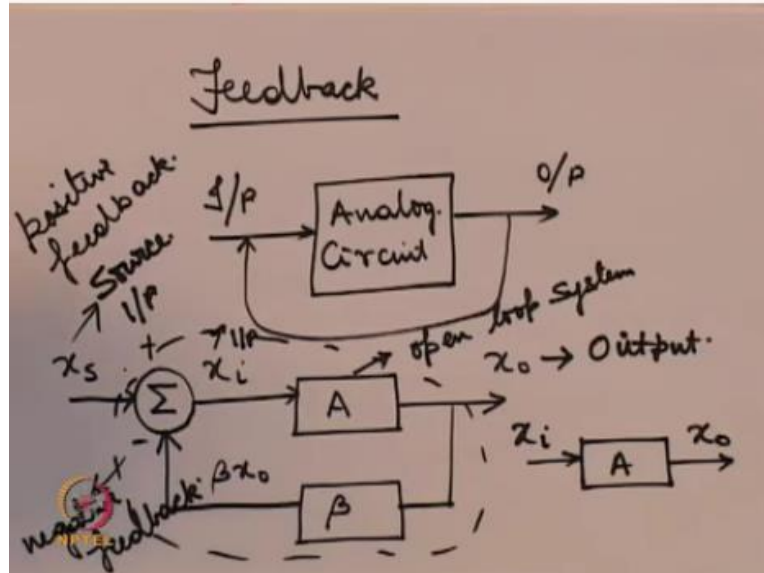 Feedback
positive
feedback.
I/P
Analog.
Circuit
O/P
Source
I/P
open loop system
+
I/P
xs
Σ
xi
A
xo → Output.
xi
A
xo
-
βxo
β
negative
feedback.
NPTEL